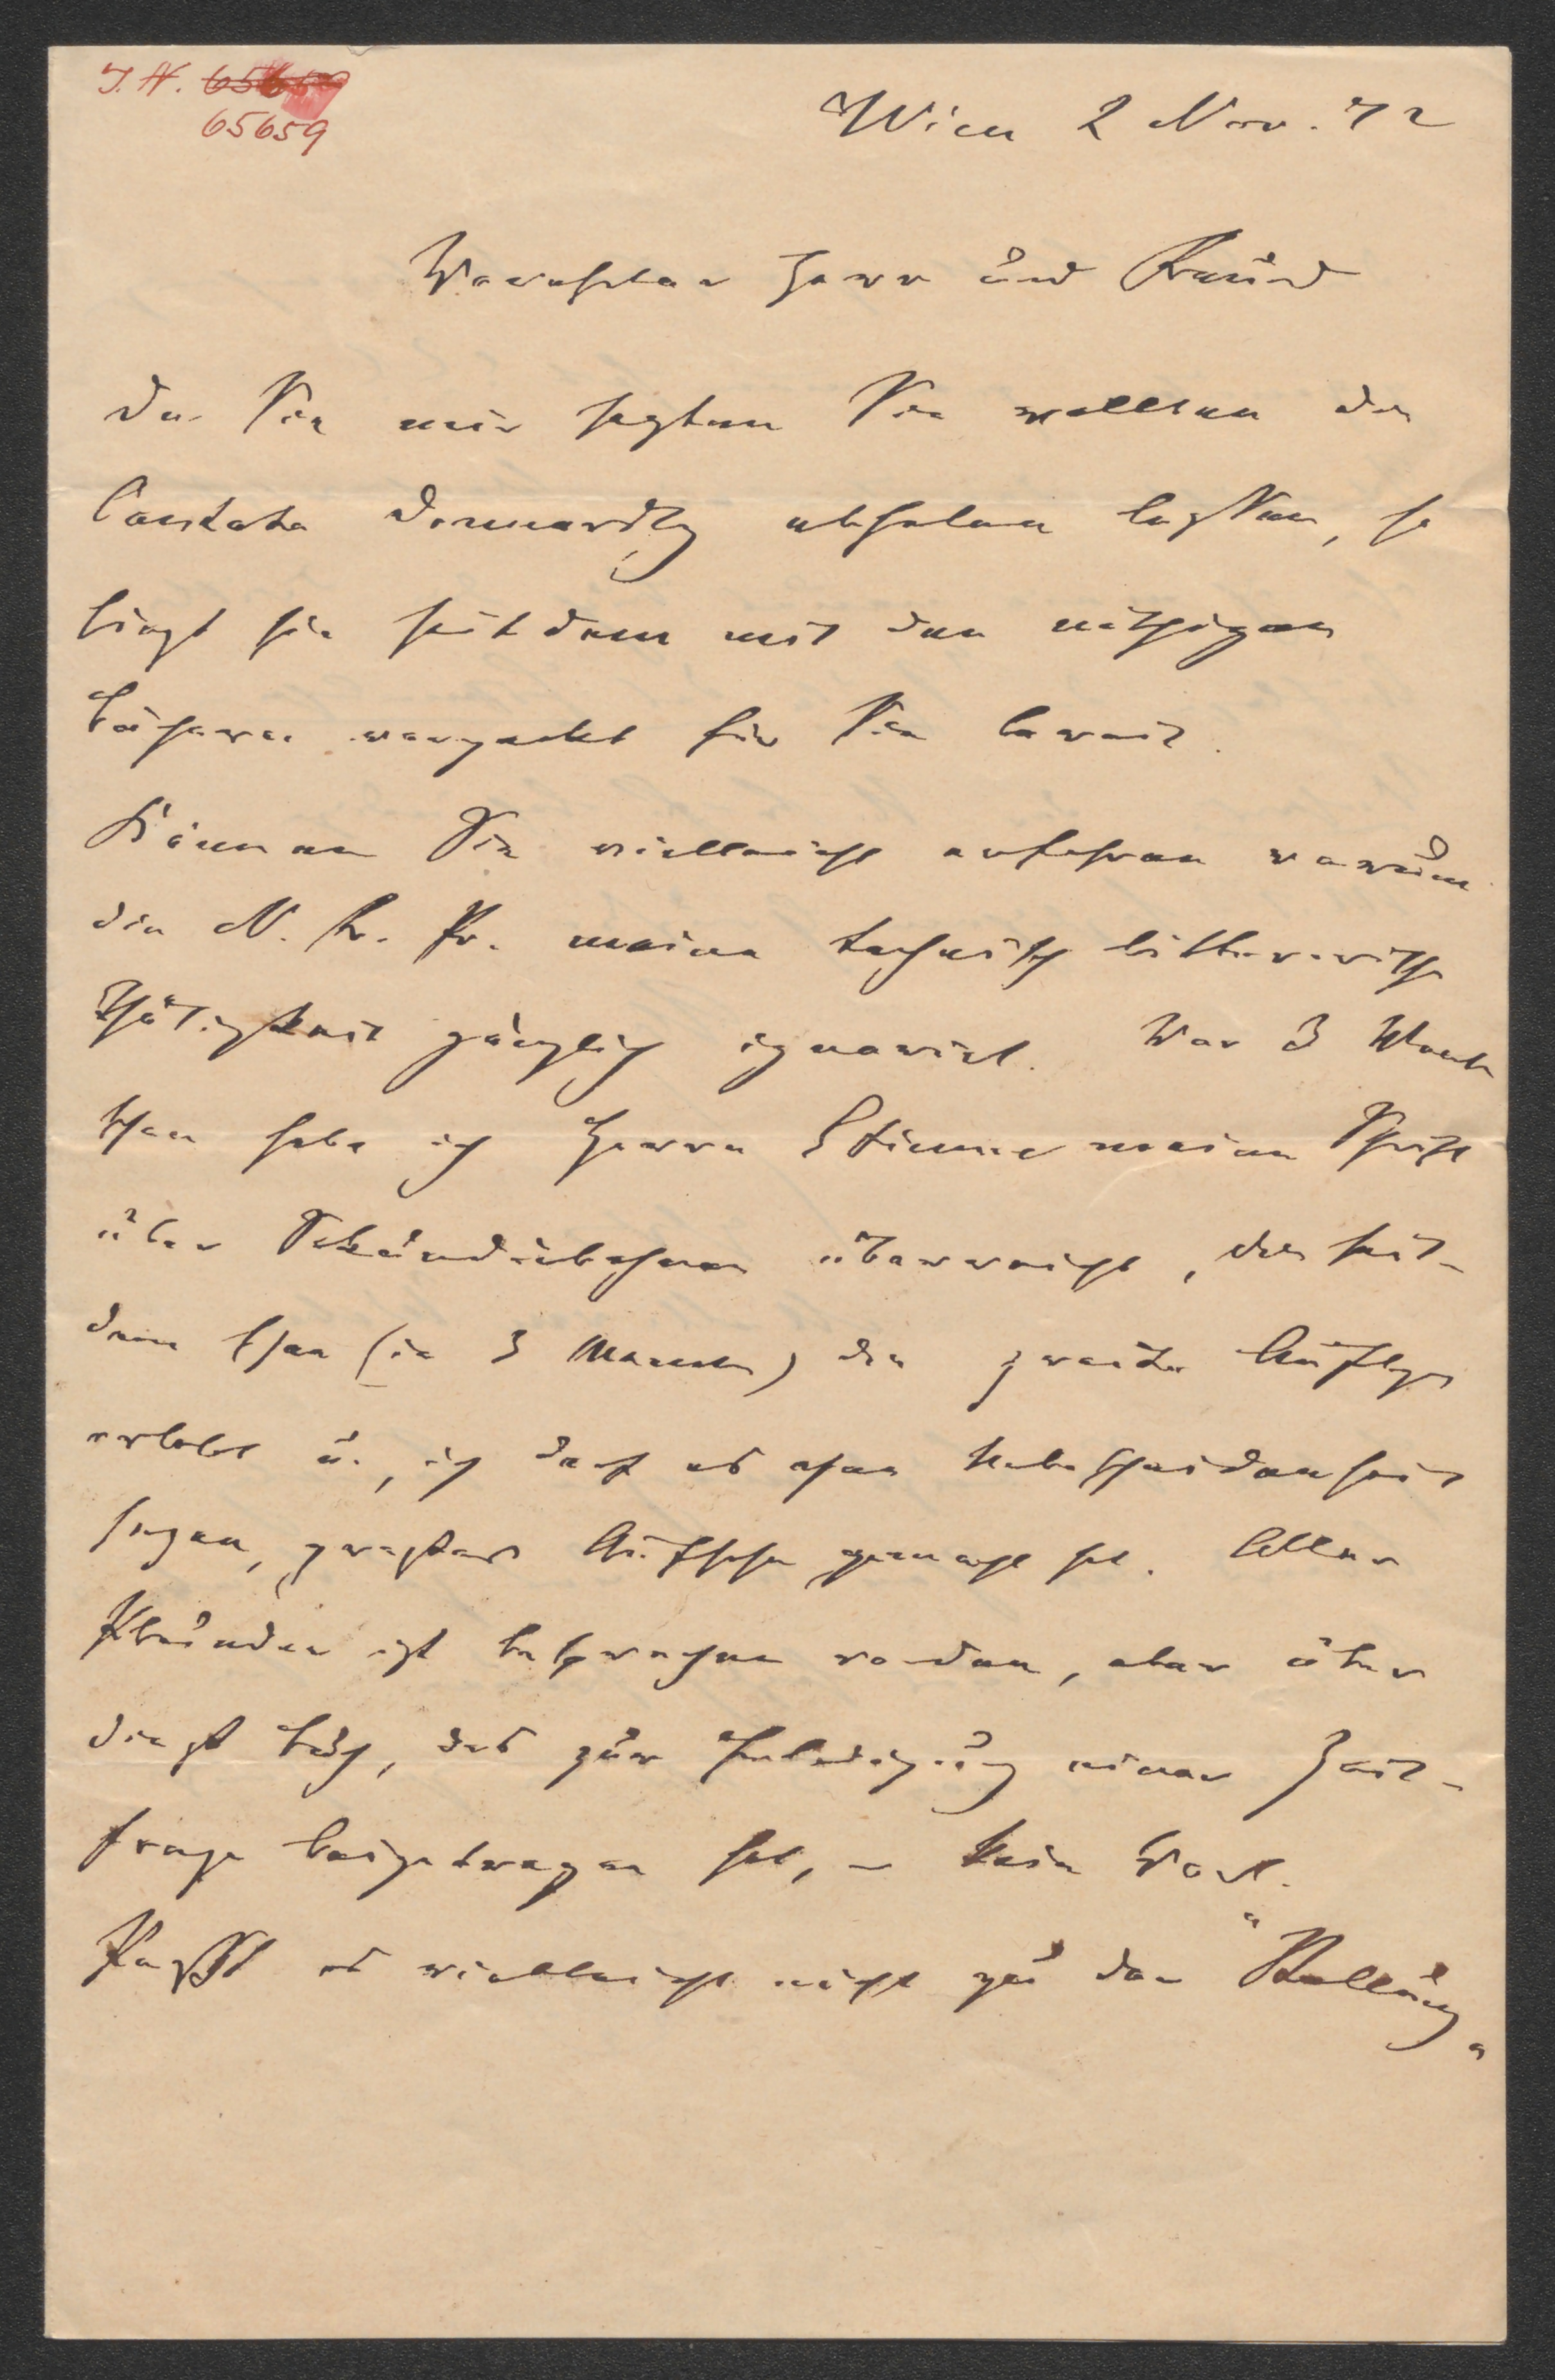 I. N. 65650
65659
Wien 2 Nov. 72
Verehrter Herr und Freund
Da Sie mir sagten Sie wollten die
Cantate Donnerstg abholen lassen, so
liegt sie seitdem mit den nöthigen
Büchern verpackt für Sie bereit.
Können Sie vielleicht erfahren warum
die N. Fr. Pr. meine technisch litterarische
Thätigkeit gänzlich ignorirt. Vor 3 Mona
ten habe ich Herrn meine Schrift
über Sekundärbahnen überreicht, die seit-
dem schon (in 3 Monaten) die zweite Auflage
erlebt u., ich darf es ohne Unbescheidenheit
sagen, großes Aufsehen gemacht hat. Aller
Schund ist besprochen worden, aber über
dieses Buch, das zur Erledigung einer Zeit-
frage beigetragen hat, – kein Wort.
Paßt es vielleicht nicht zu der "Stellung"